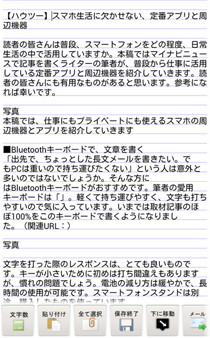 【ハウツー】スマホ生活に欠かせない、定番アプリと周
辺機器
読者の皆さんは普段、スマートフォンをどの程度、日常
生活の中で活用していますか。本稿ではマイナビニュー
スで記事を書くライターの筆者が、普段から仕事に活用
している定番アプリと周辺機器を紹介していきます。読
者の皆さんにも有用なものがあると思います。参考にな
れば幸いです。
写真
本稿では、仕事にもプライベートにも使えるスマホの周
辺機器とアプリを紹介していきます
■Bluetoothキーボードで、文章を書く
「出先で、ちょっとした長文メールを書きたい。で
もPCは重いので持ち運びたくない」という人は意外と
多いのではないでしょうか。そんな方に
はBluetoothキーボードがおすすめです。筆者の愛用
キーボードは「」。軽くて持ち運びやすく、文字も打ち
やすいので気に入っています。いまでは取材記事のほ
ぼ100%をこのキーボードで書くようになりまし
た。（関連URL：）
写真
文字を打った際のレスポンスは、とても良いもので
す。キーが小さいために初めは打ち間違えもあります
が、慣れの問題でしょう。電池の減り方は緩やかで、長
時間の使用が可能です。スマートフォンスタンドは別
途、購入したものを使っています
文字数 貼り付け 全て選択 保存終了 下に移動 メール